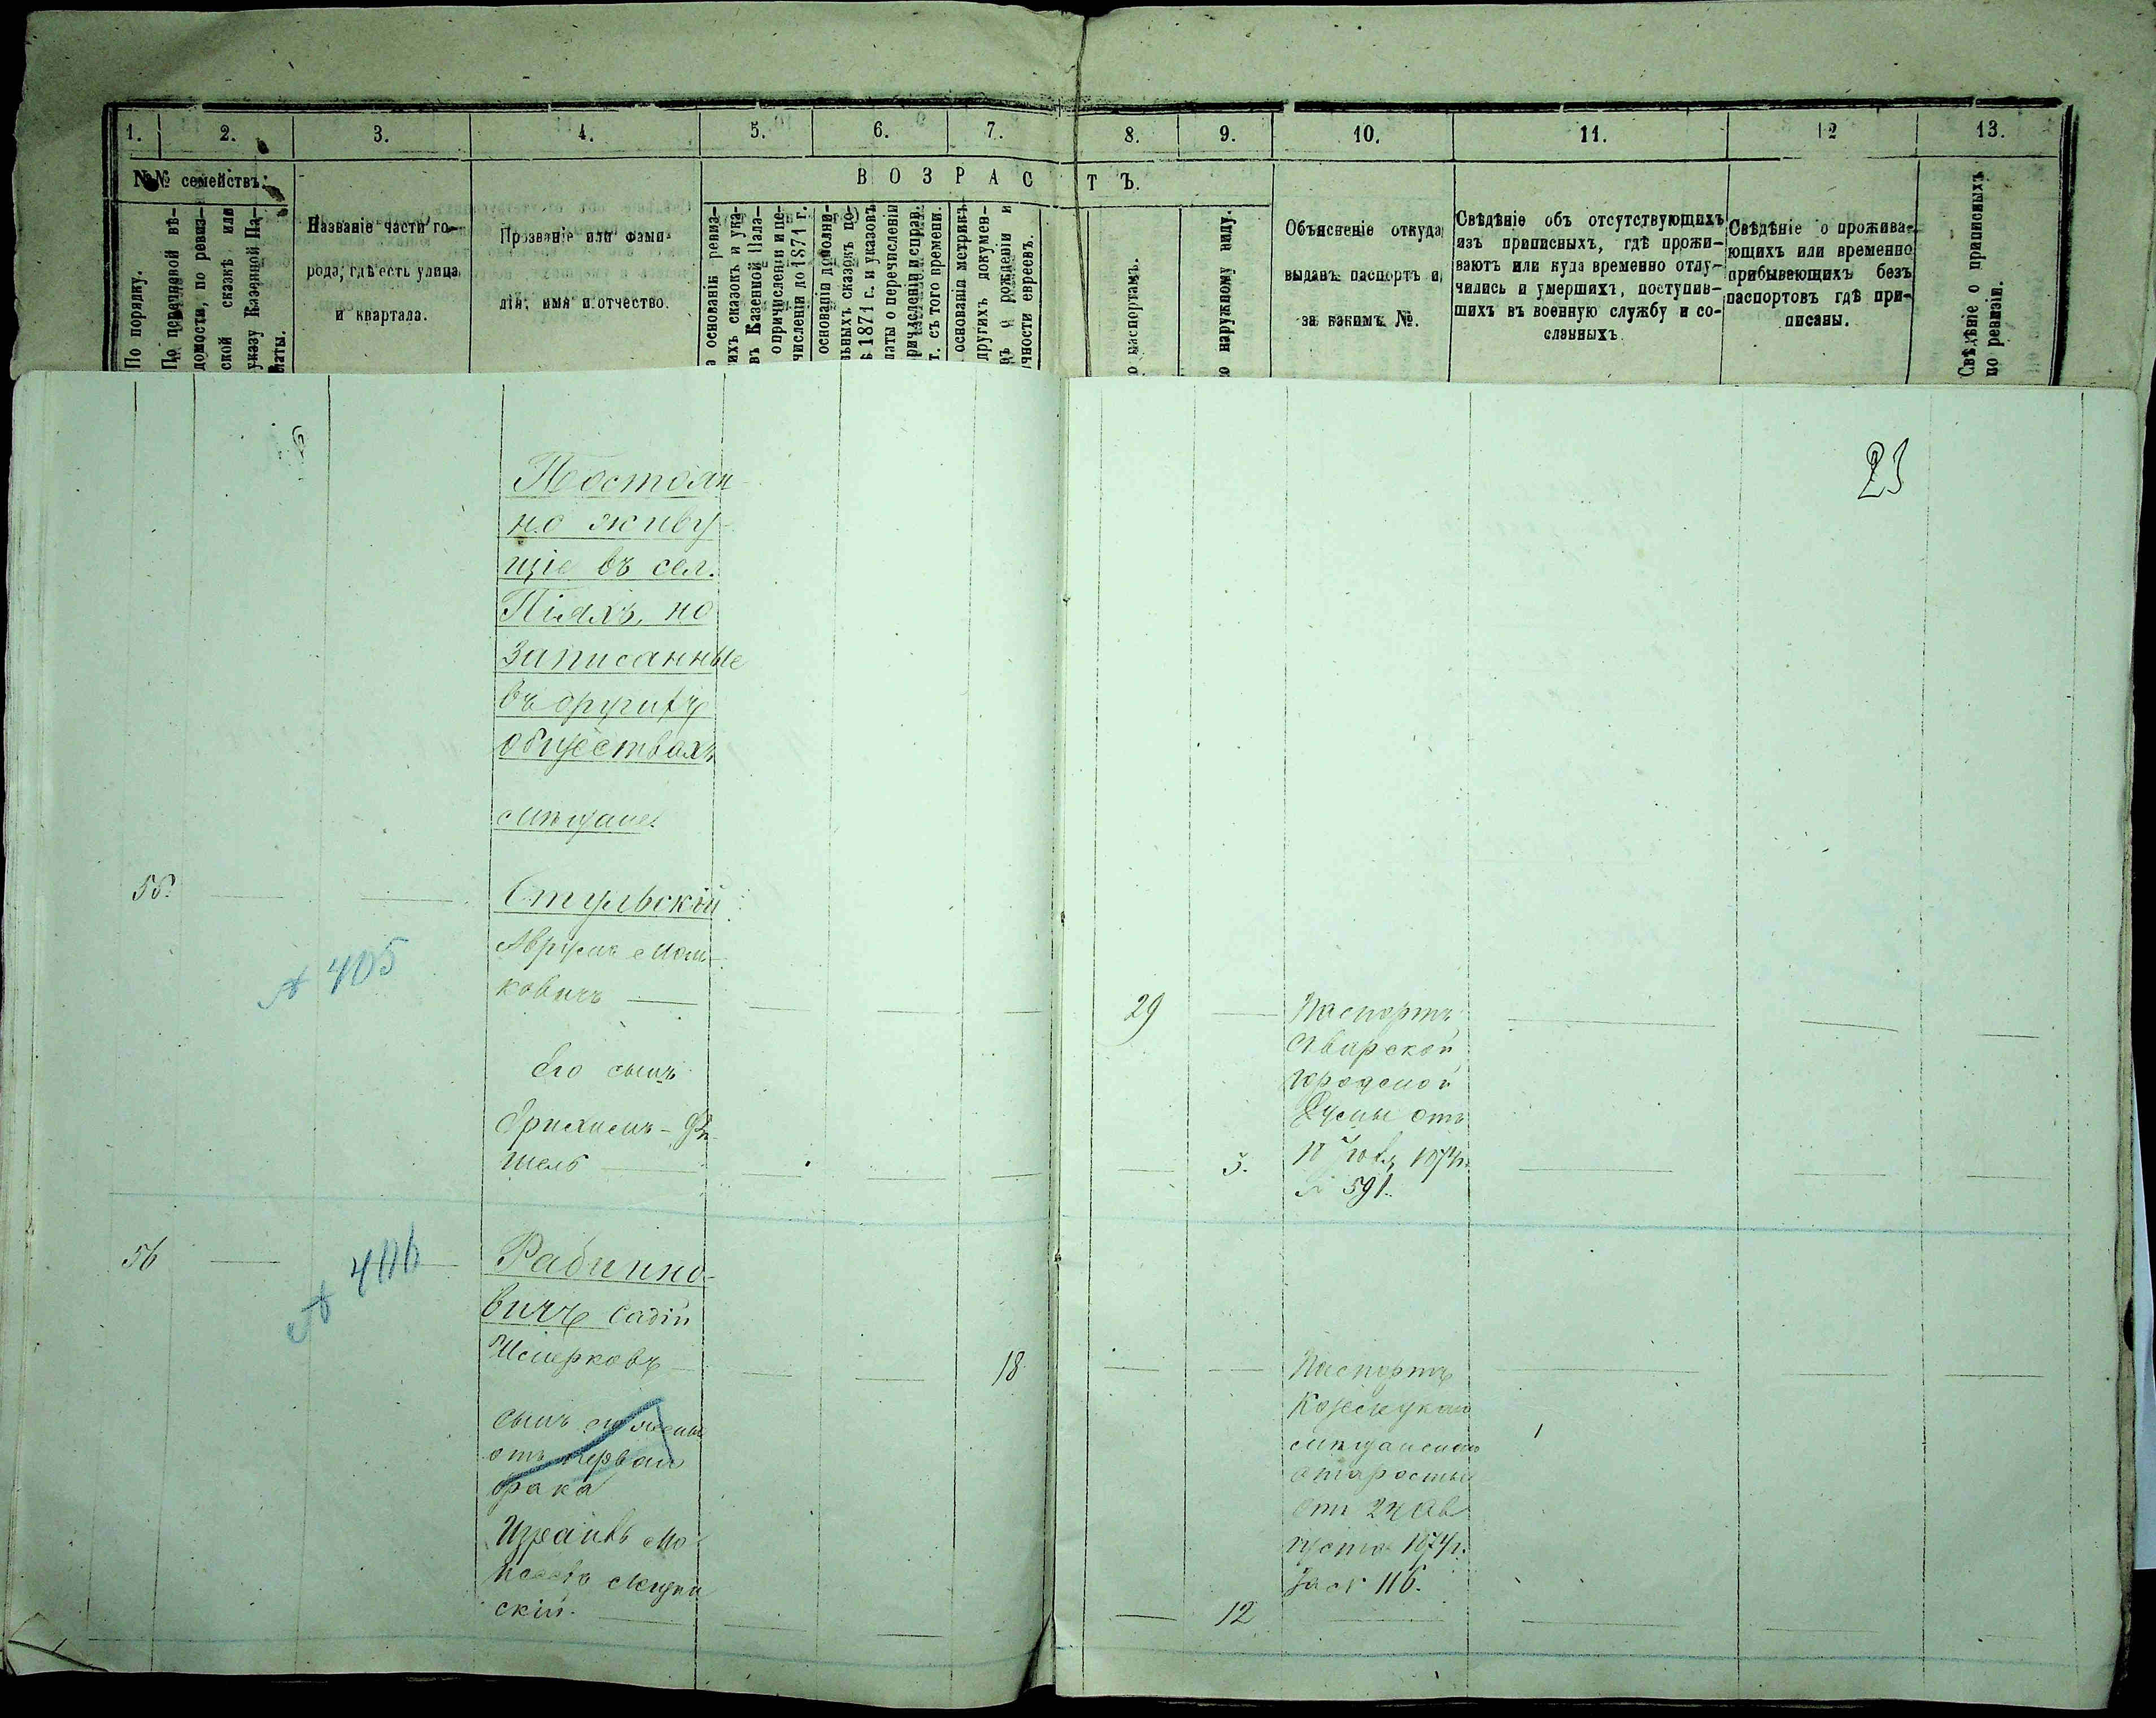 1. 2. 3. 4. 5. 6. 7. 8. 9. 10. 11. 12 13.
№№ семействъ.
ВОЗРАСТЪ.
По порядку.
По перечневой вѣ-
домости, по ревиз-
ской сказкѣ или
указу Казенной Па-
латы.
Названіе части го-
рода, гдѣ есть улица
и квартала.
Прозваніе или фами-
лій, имя и отчество.
основаніи ревиз-
ихъ сказокъ и ука-
въ Казенной Пала-
о причисленіи и пе-
численіи до 1871 г.
основаніи дополни-
льныхъ сказокъ по-
ѣ 1871 г. и указовъ
латы о перечисленіи
причисленіи и справ.
т. съ того времени.
основаніи метрикъ
другихъ докумен-
въ о рожденіи и
чности евреевъ.
о паспортамъ.
о наружному виду.
Объясненіе откуда
выданъ паспортъ и
за какимъ №.
Свѣдѣніе объ отсутствующихъ
изъ приписныхъ, гдѣ прожи-
ваютъ или куда временно отлу-
чились и умершихъ, поступив-
шихъ въ военную службу и со-
сланныхъ.
Свѣдѣніе о прожива-
ющихъ или временно
прибывающихъ безъ
паспортовъ гдѣ при-
писаны.
Свѣдѣніе о приписныхъ
по ревизіи.
23
Постоян-
но живу-
щіе въ сел.
Піяхъ, но
записанные
въ другихъ
обществахъ
мѣщане.
55.
Стульскій
№ 405
Аврумъ Мош-
ковичъ
29
Паспортъ
городской
Думы отъ
его сынъ
шель
5.
1874 г.
№ 591.
56
№ 406
Рабино-
вичъ
18
Паспортъ
сынъ его жены
отъ перваго
брака
мѣщанскаго
старосты
отъ 24 Ав
густа 1874 г.
за № 116.
скій.
12